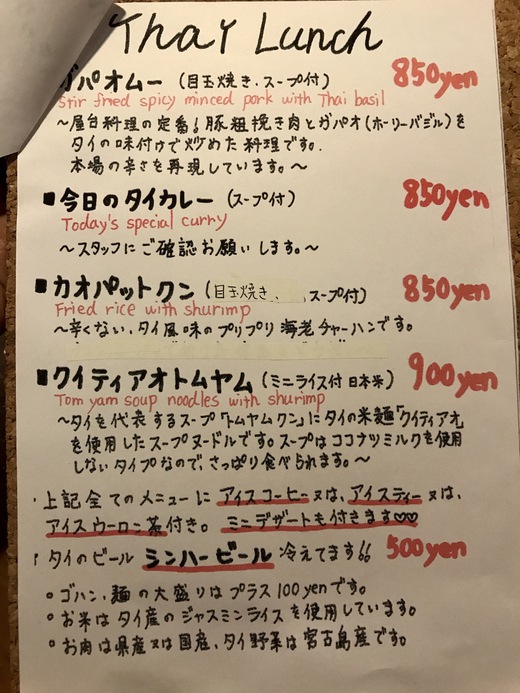 Thai Lunch
ガパオムー (目玉焼き、スープ付) 850yen
Stir fried spicy minced pork with Thai basil
〜屋台料理の定番!豚粗挽き肉とガパオ(ホーリーバジル)を
タイの味付けで炒めた料理です.
本場の辛さを再現しています。〜
■今日のタイカレー (スープ付) 850yen
Today's special curry
〜スタッフにご確認お願いします。〜
■カオパットクン (目玉焼き、スープ付) 850yen
Fried rice with shurimp
〜辛くない、タイ風味のプリプリ海老チャーハンです。
■クイティアオトムヤム (ミニライス付 日本米) 900yen
Tom yam soup noodles with shurimp
〜タイを代表するスープ「トムヤムクン」にタイの米麺「クイティアオ」
を使用したスープヌードルです。スープはココナツミルクを使用
しないタイプなので、さっぱり食べられます。〜
・上記全てのメニューにアイスコーヒー又は、アイスティー又は、
アイスウーロン茶付き。ミニデザートも付きます♡♡
タイのビール シンハービール 冷えてます!! 500yen
○ゴハン、麺の大盛りはプラス100yenです。
○お米はタイ産のジャスミンライスを使用しています。
○お肉は県産又は国産、タイ野菜は宮古島産です。